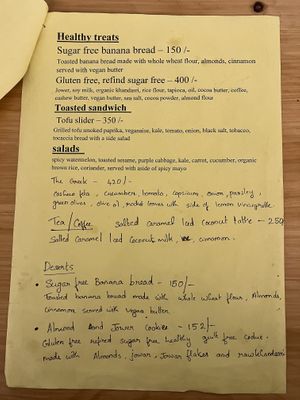 Healthy treats
Sugar free banana bread – 150 /-
Toasted banana bread made with whole wheat flour, almonds, cinnamon
served with vegan butter
Gluten free, refind sugar free – 400 /-
Jower, soy milk, organic khandsari, rice flour, tapioca, oil, cocoa butter, coffee,
cashew butter, vegan butter, sea salt, cocoa powder, almond flour
Toasted sandwich
Tofu slider – 350 /-
Grilled tofu smoked paprika, veganaise, kale, tomato, onion, black salt, tobacco,
focaccia bread with a side salad
salads
spicy watermelon, toasted sesame, purple cabbage, kale, carrot, cucumber, organic
brown rice, coriander, served with aside of spicy mayo
The Greek – 420/-
Cashew feta, cucumber, tomato, capsicum, onion, parsley,
green olives, olive oil, leaves with side of lemon vinaigrette
Tea / Coffee Salted caramel Iced Coconut latte – 250
Salted Caramel Iced Coconut milk, cinnamon.
Deserts
• Sugar free Banana bread – 150/-
Toasted banana bread made with whole wheat flour, Almonds,
Cinnamon served with vegan butter
• Almond And Jowar Cookies – 152/-
Gluten free refined sugar free healthy guilt free
made with Almonds, Jowar, Jowar flakes and